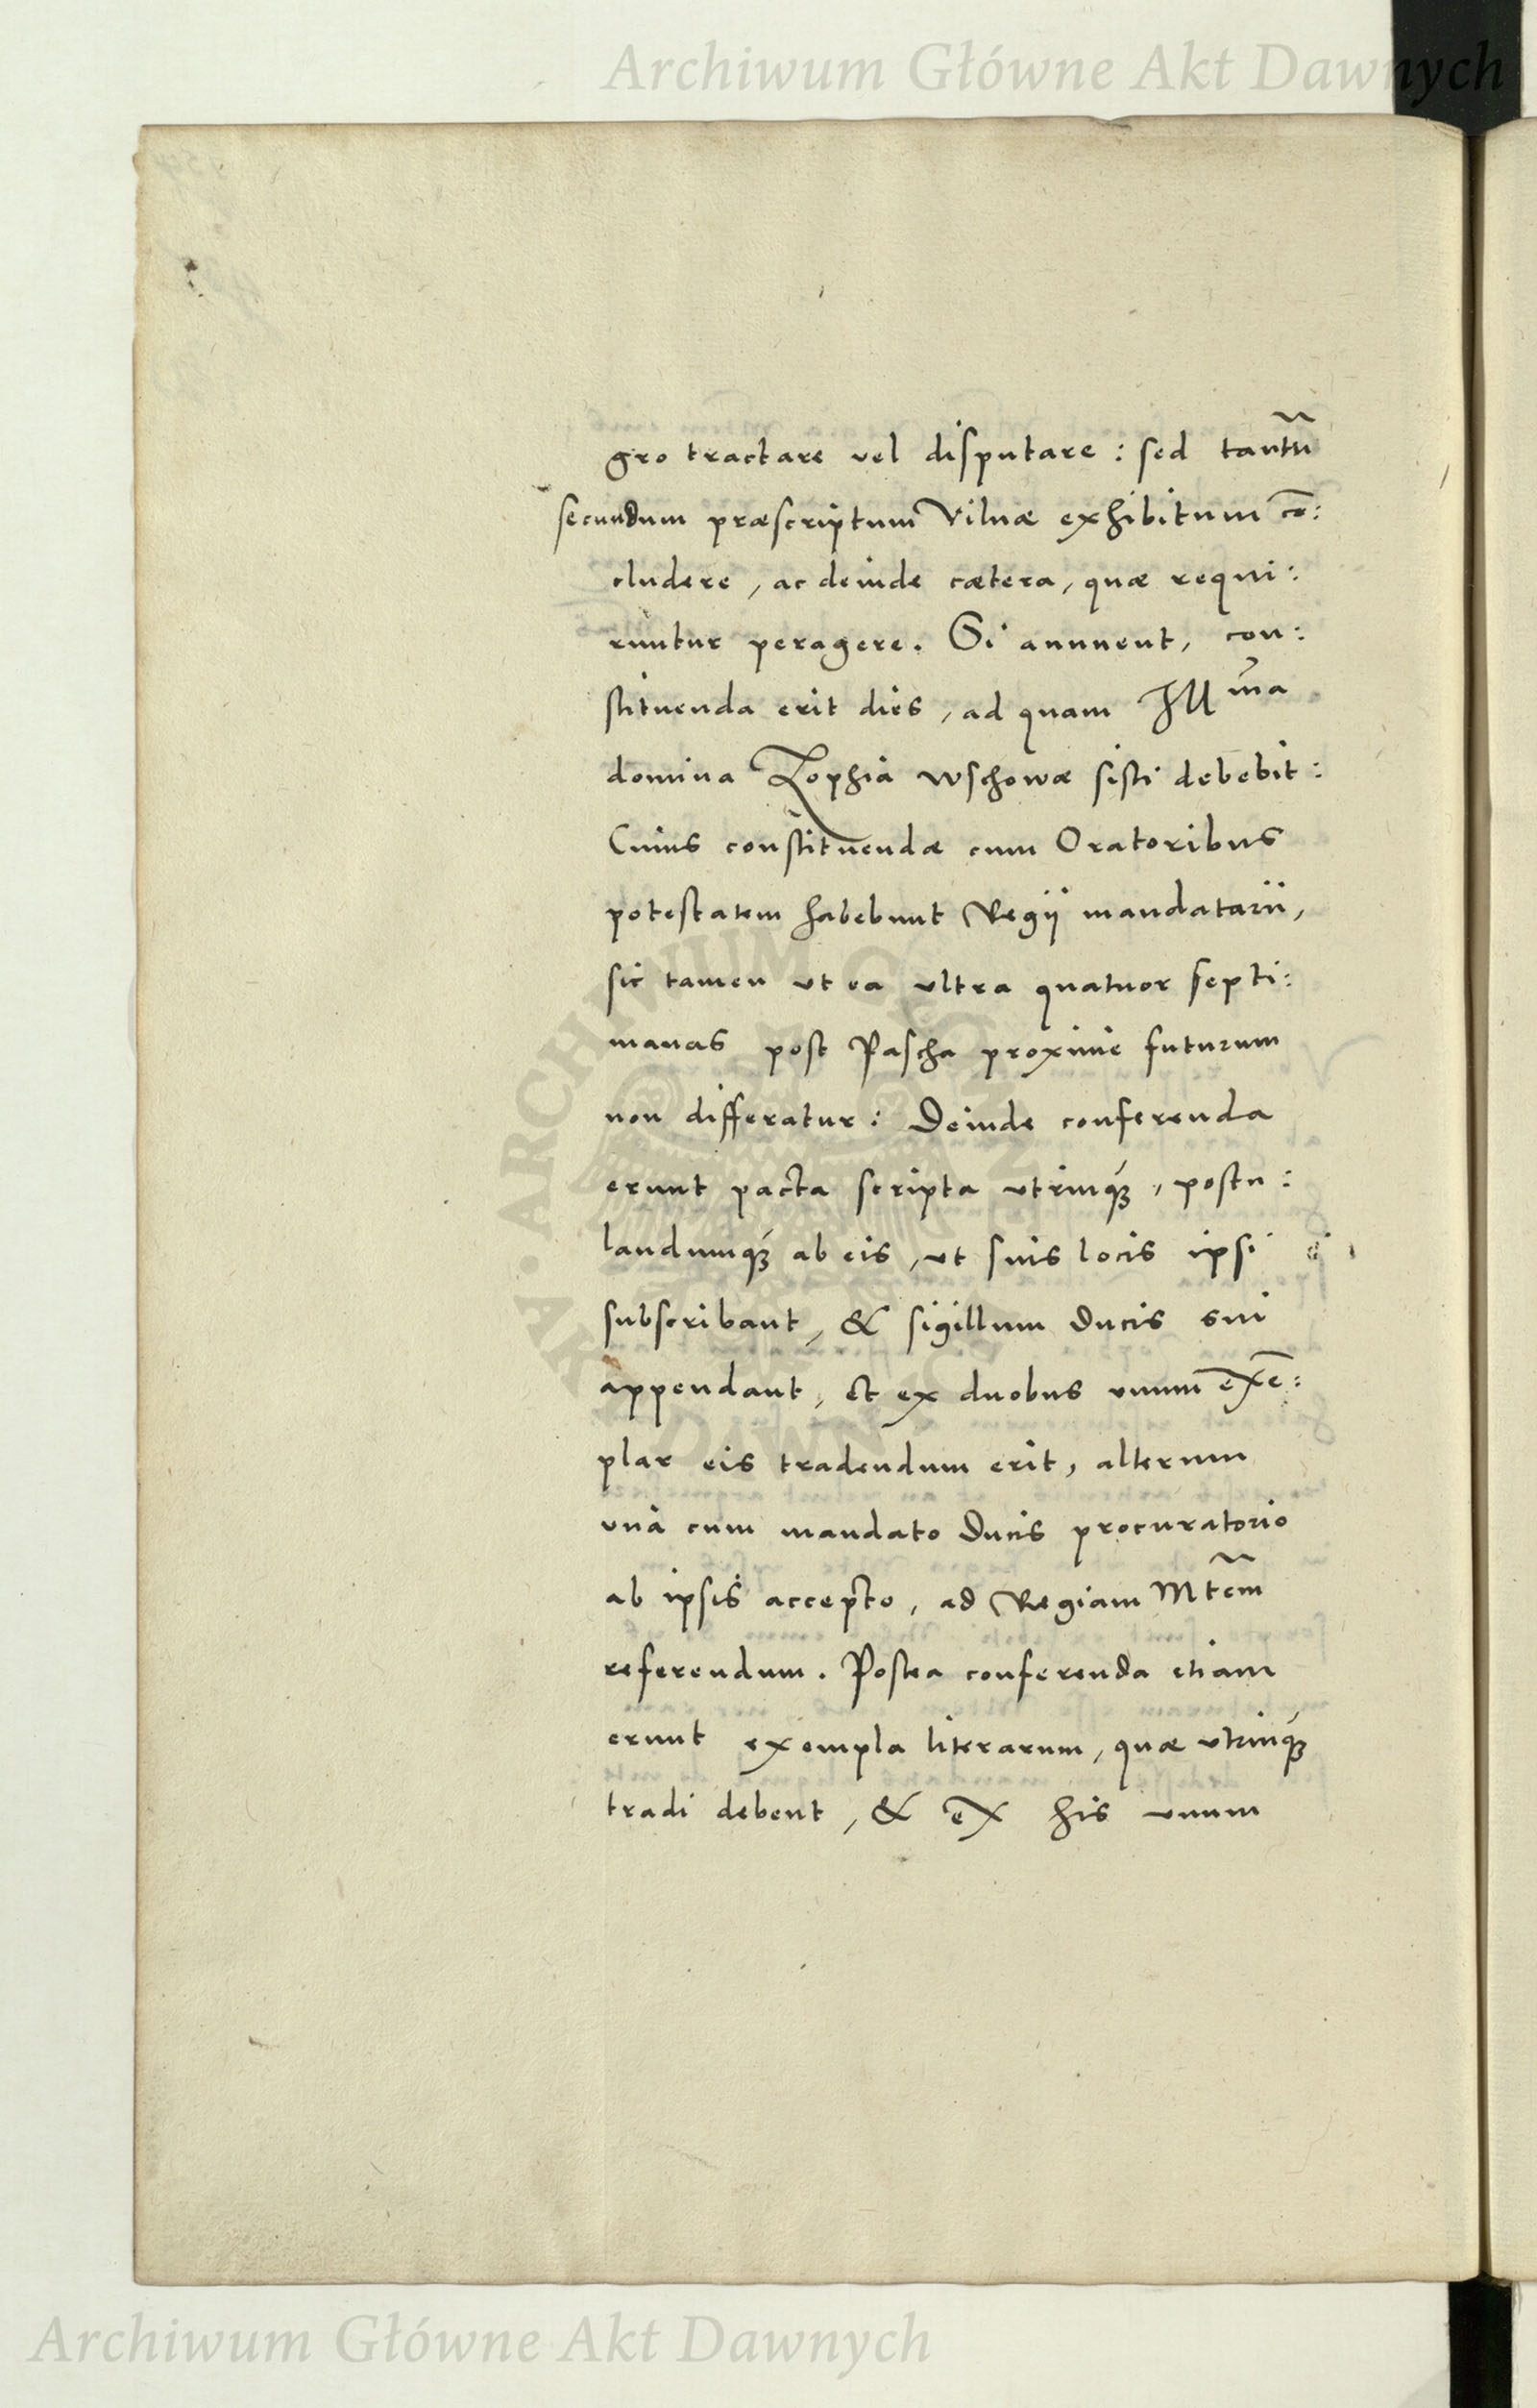 Archiwum Główne Akt Dawnych
gro tractare vel disputare : sed tantu̅
secundum præscriptum Vilnæ exhibitum co̅:
cludere, ac deinde cætera, quæ requi:
runtur peragere. Si annuent, con:
stituenda erit dies, ad quam Illm̅a
domina Zophia Wschowæ sisti debebit:
Cuius constituendæ cum Oratoribus
potestatem habebunt Regij mandatarii,
sic tamen ut ea ultra quatuor septi:
manas post Pascha proxime futurum
non differatur: Deinde conferenda
erunt pacta scripta utrinqꝫ, postu:
landumqꝫ ab eis, ut suis locis ipsi
subscribant, & sigillum Ducis sui
appendant, et ex duobus unum exe̅:
plar eis tradendum erit, alterum
unà cum mandato Ducis procuratorio
ab ipsis accepto, ad Regiam Mte̅m
referendum. Postea conferenda etiam
erunt exempla literarum, quæ utrinqꝫ
tradi debent, & ex his unum
ARCHIWUM GŁÓWNE AKT DAWNYCH
Archiwum Główne Akt Dawnych